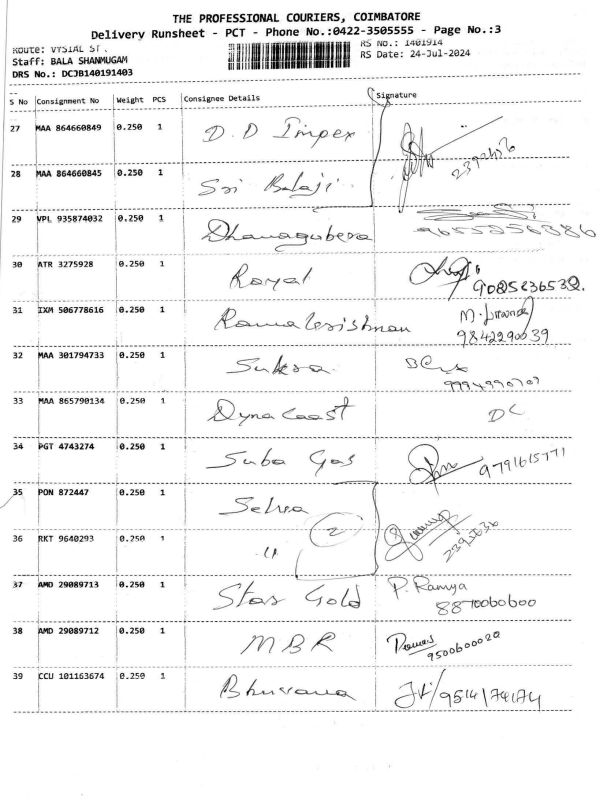 THE PROFESSIONAL COURIERS, COIMBATORE
Delivery Runsheet - PCT - Phone No.:0422-3505555 - Page No.:3
Route: VYSIAL ST . RS No.: 1401914
Staff: BALA SHANMUGAM RS Date: 24-Jul-2024
DRS No.: DCJB140191403
S No Consignment No Weight PCS Consignee Details Signature
27 MAA 864660849 0.250 1 D.D Impex
28 MAA 864660845 0.250 1 Sri Balaji
29 VPL 935874032 0.250 1 Dhanagubera 9655256386
30 ATR 3275928 0.250 1 Royal 9085236532.
31 IXM 506778616 0.250 1 Ramakrishnan M.
9842290039
32 MAA 301794733 0.250 1 Suksa
33 MAA 865790134 0.250 1 Dyna Coast DC
34 PGT 4743274 0.250 1 Suba Gas 9791615771
35 PON 872447 0.250 1 Selva
2
36 RKT 9640293 0.250 1 "
37 AMD 29089713 0.250 1 Star Gold P. Ramya
8870060600
38 AMD 29089712 0.250 1 MBR
9500600020
39 CCU 101163674 0.250 1 Bhuvana JK/9514174174